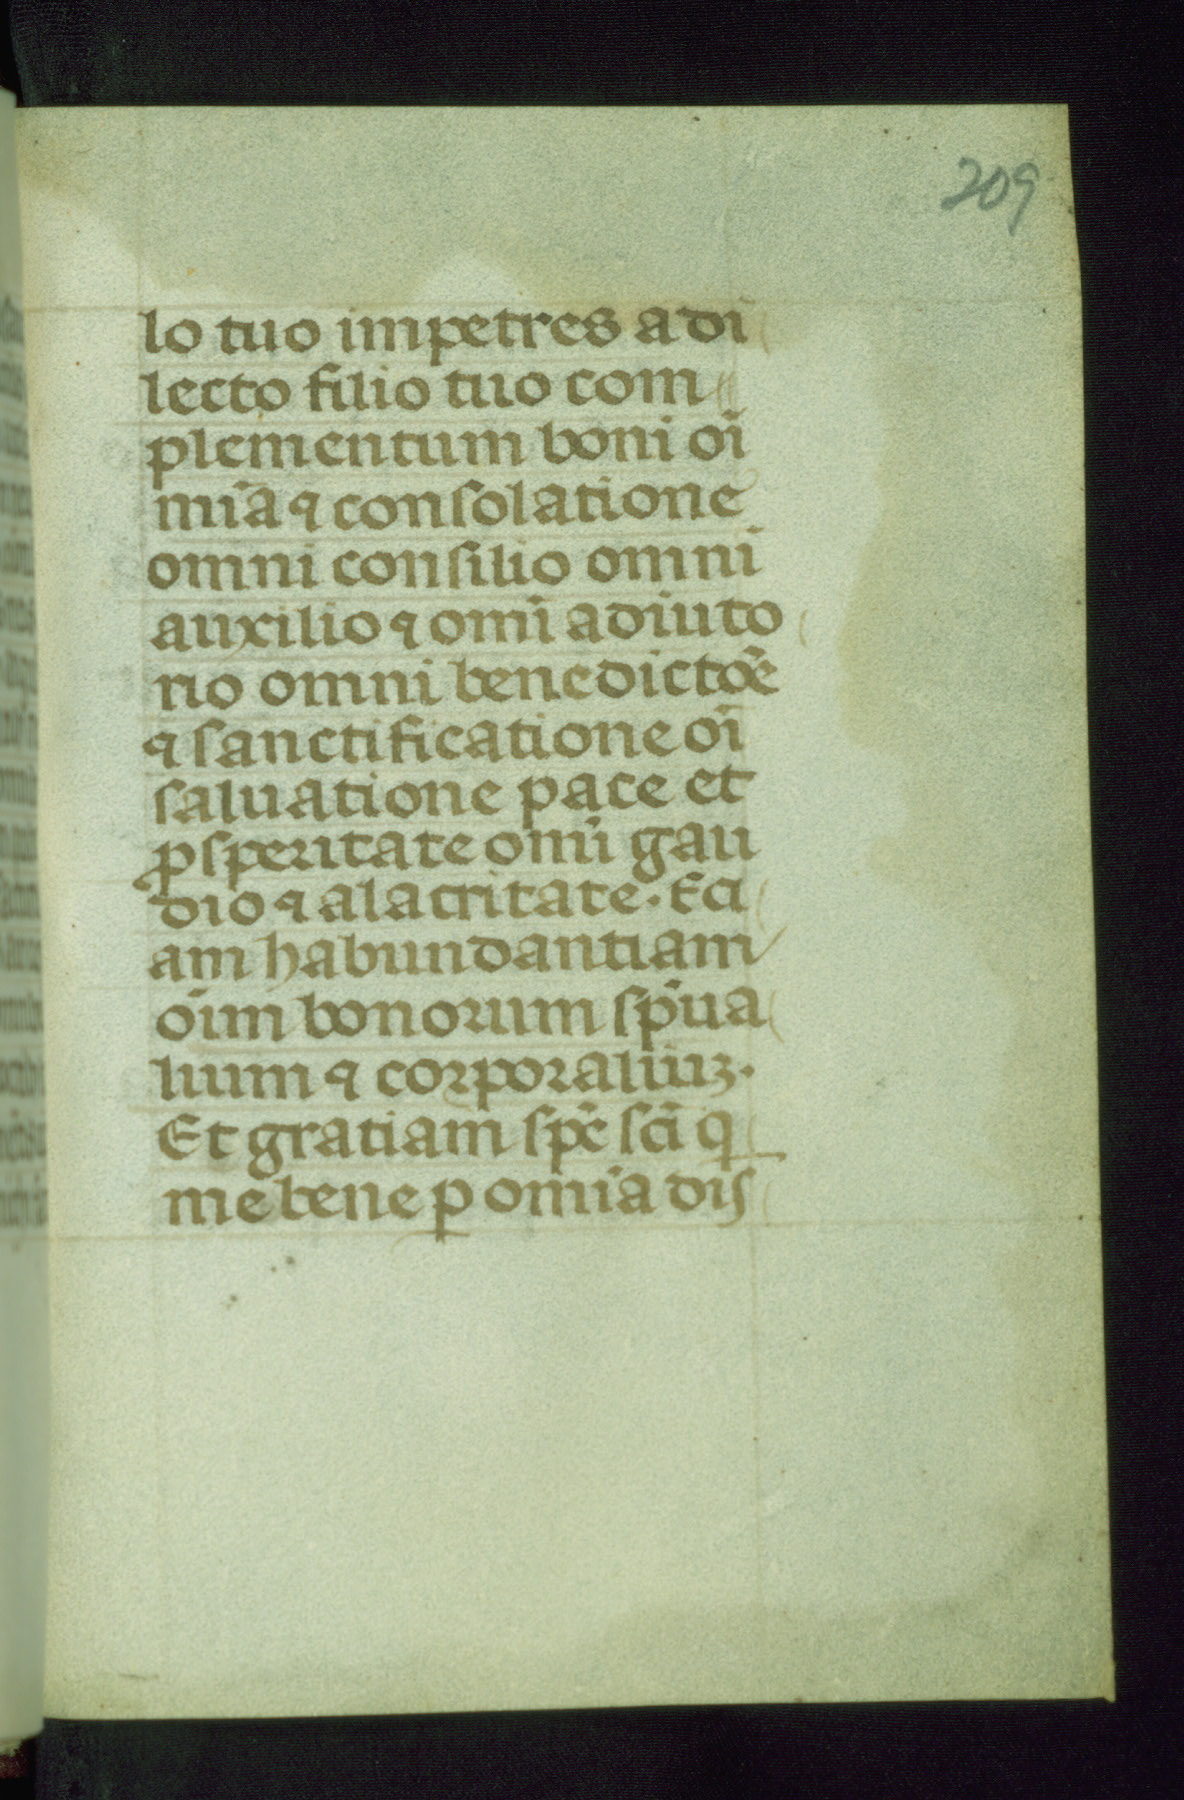 209
lo tuo impetres a di
lecto filio tuo com
plementum boni oī
mīa ⁊ consolatione
omni consilio omni
auxilio ⁊ omī adiuto
rio omni benedictōe
⁊ sanctificatione oī
saluatione pace et
ꝓsperitate omī gau
dio ⁊ alacritate. Eci
am habundantiam
oīm bonorum sp̄ua
lium ⁊ corporaliuꝫ.
Et gratiam sp̄c sc̄i ꝗ
me bene ꝑ omīa dis